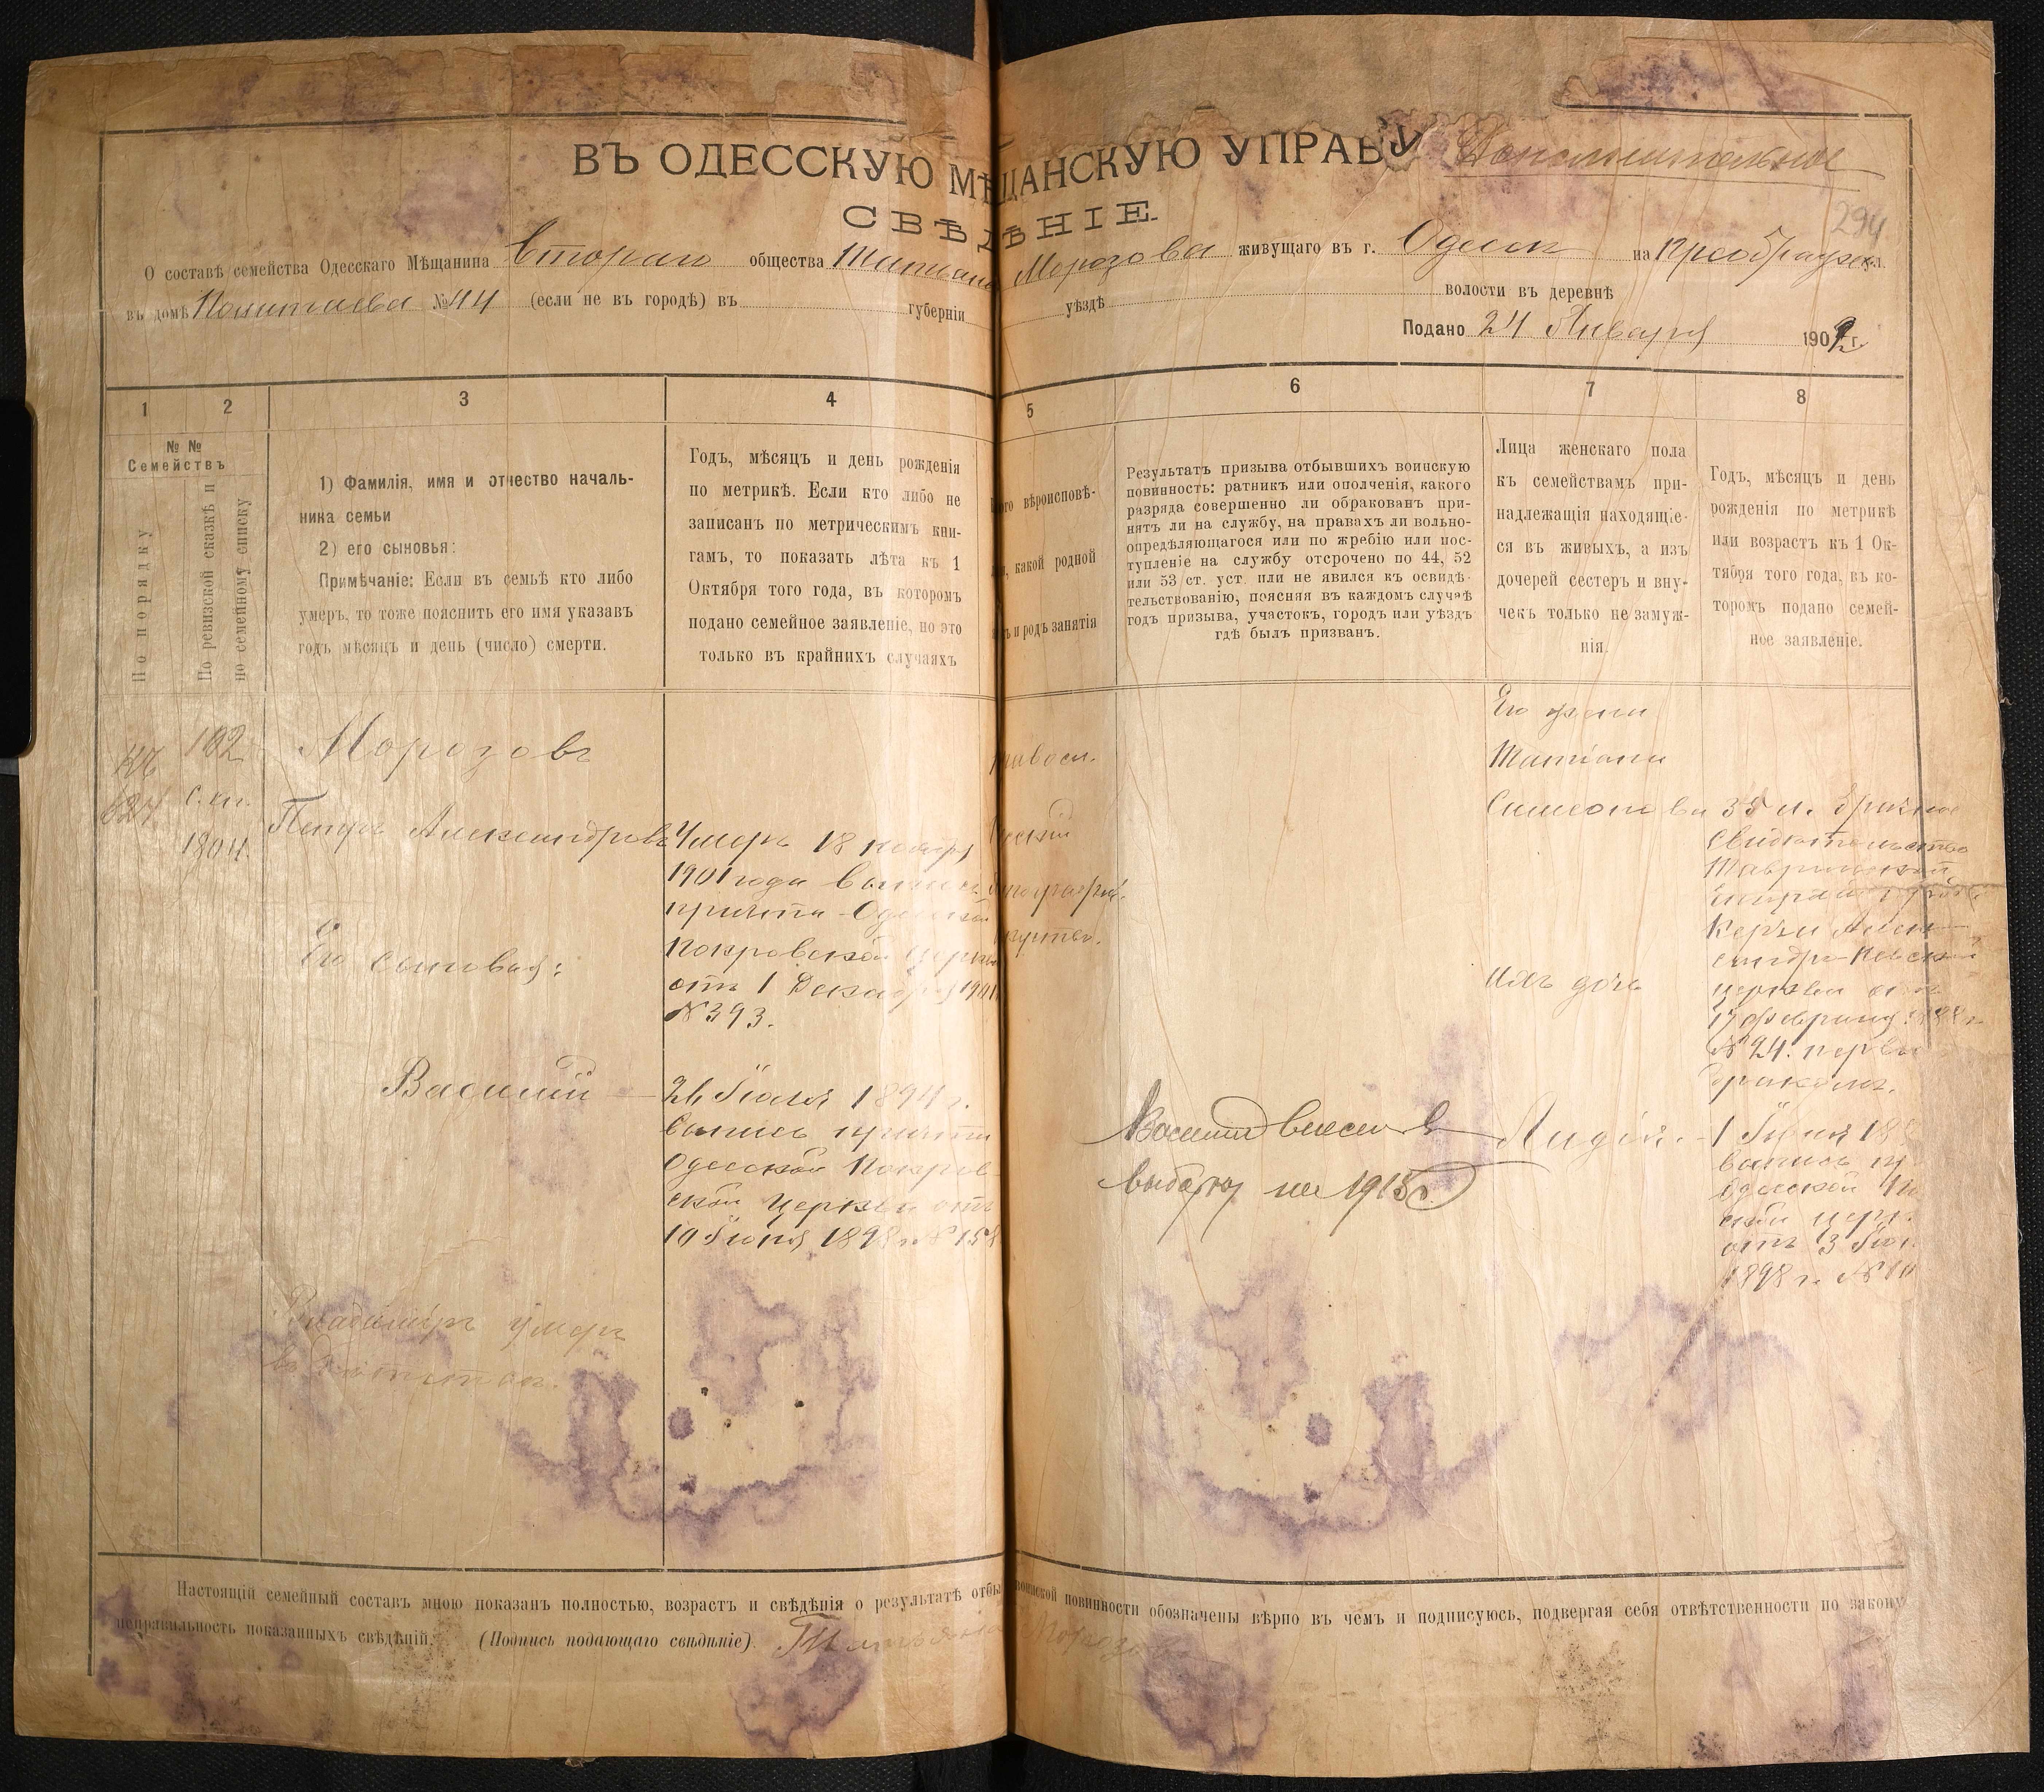 ВЪ ОДЕССКУЮ МѢЩАНСКУЮ УПРАВУ
Дополнительное
СВѢДѢНІЕ
294
О составѣ семейства Одесскаго Мѣщанина Второго общества Татіана Морозова живущаго въ г. Одессѣ на Преображен. ул.
въ домѣ № 44 (если не въ городѣ) въ губерніи уѣздѣ волости въ деревнѣ
Подано 24 Января 1902 г.
1 2 3 4 5 6 7 8
№ №
Семействъ
По порядку
По ревизской сказкѣ и
по семейному списку
1) Фамилія, имя и отчество началь-
ника семьи
2) его сыновья:
Примѣчаніе: Если въ семьѣ кто либо
умеръ, то тоже пояснить его имя указавъ
годъ мѣсяцъ и день (число) смерти.
Годъ, мѣсяцъ и день рожденія
по метрикѣ. Если кто либо не
записанъ по метрическимъ кни-
гамъ, то показать лѣта къ 1
Октября того года, въ которомъ
подано семейное заявленіе, но это
только въ крайнихъ случаяхъ
вѣроисповѣ-
какой родной
и родъ занятія
Результатъ призыва отбывшихъ воинскую
повинность: ратникъ или ополченія, какого
разряда совершенно ли обракованъ при-
нятъ ли на службу, на правахъ ли вольно-
опредѣляющагося или по жребію или пос-
тупленіе на службу отсрочено по 44, 52
или 53 ст. уст. или не явился къ освидѣ-
тельствованію, поясняя въ каждомъ случаѣ
годъ призыва, участокъ, городъ или уѣздъ
гдѣ былъ призванъ.
Лица женскаго пола
къ семействамъ при-
надлежащія находящіе-
ся въ живыхъ, а изъ
дочерей сестеръ и вну-
чекъ только не замуж-
нія.
Годъ, мѣсяцъ и день
рожденія по метрикѣ
или возрастъ къ 1 Ок-
тября того года, въ ко-
торомъ подано семей-
ное заявленіе.
162
с. сп.
1904
Морозовъ
Петръ Александровъ
Умеръ 18 ноября
1901 года выпись
причта Одесской
Покровской церкви
отъ 1 Декабря 1901
№ 393.
Его сыновья:
Василій
26 Іюля 1894 г.
выпись причта
Одесской Покров-
ской церкви отъ
10 Іюня 1898 г. № 158
Владиміръ умеръ
въ дѣтствѣ.
правосл.
Василій внесенъ въ
выборку на 1915 г.
Его жена
Татіана
Симеонова
35 л. брачное
свидѣтельство
Таврической
Епархіи
Керчи Алек-
сандро-Невской
церкви отъ
17 февраля
№ 24. первымъ
бракомъ.
ихъ дочь
Лидія
1 Іюня 18
выпись
Одесской
ской церк.
отъ 3 Іюн
1898 г. №
Настоящій семейный составъ мною показанъ полностью, возрастъ и свѣдѣнія о результатѣ отбы воинской повинности обозначены вѣрно въ чемъ и подписуюсь, подвергая себя отвѣтственности по закону
неправильность показанныхъ свѣдѣній. (Подпись подающаго свѣдѣніе). Татьяна Морозова